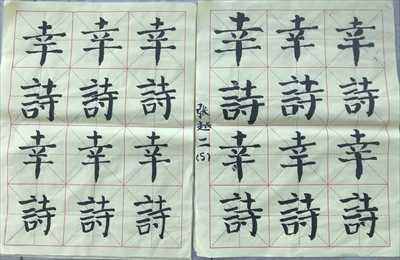 幸 幸 幸
詩 詩 詩
幸 幸 幸
詩 詩 詩
幸 幸 幸
詩 詩 詩
幸 幸 幸
詩 詩 詩
张越二(5)